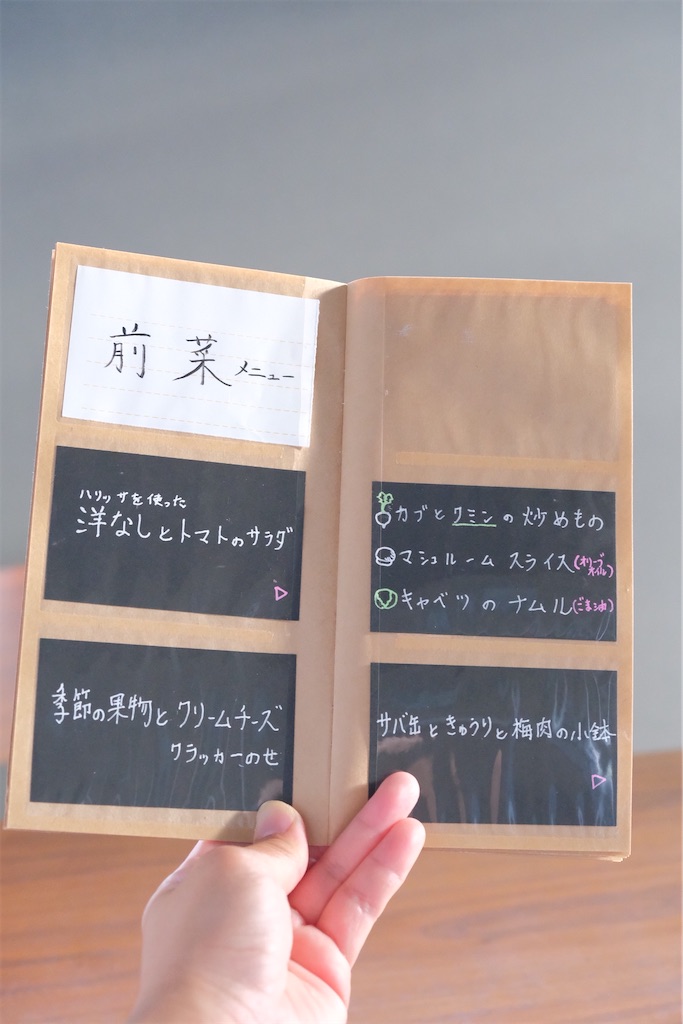 前菜メニュー
ハリッサを使った
洋なしとトマトのサラダ
季節の果物とクリームチーズ
クラッカーのせ
カブとクミンの炒めもの
マシュルーム スライス(オリーブオイル)
キャベツのナムル(ごま油)
サバ缶ときゅうりと梅肉の小鉢